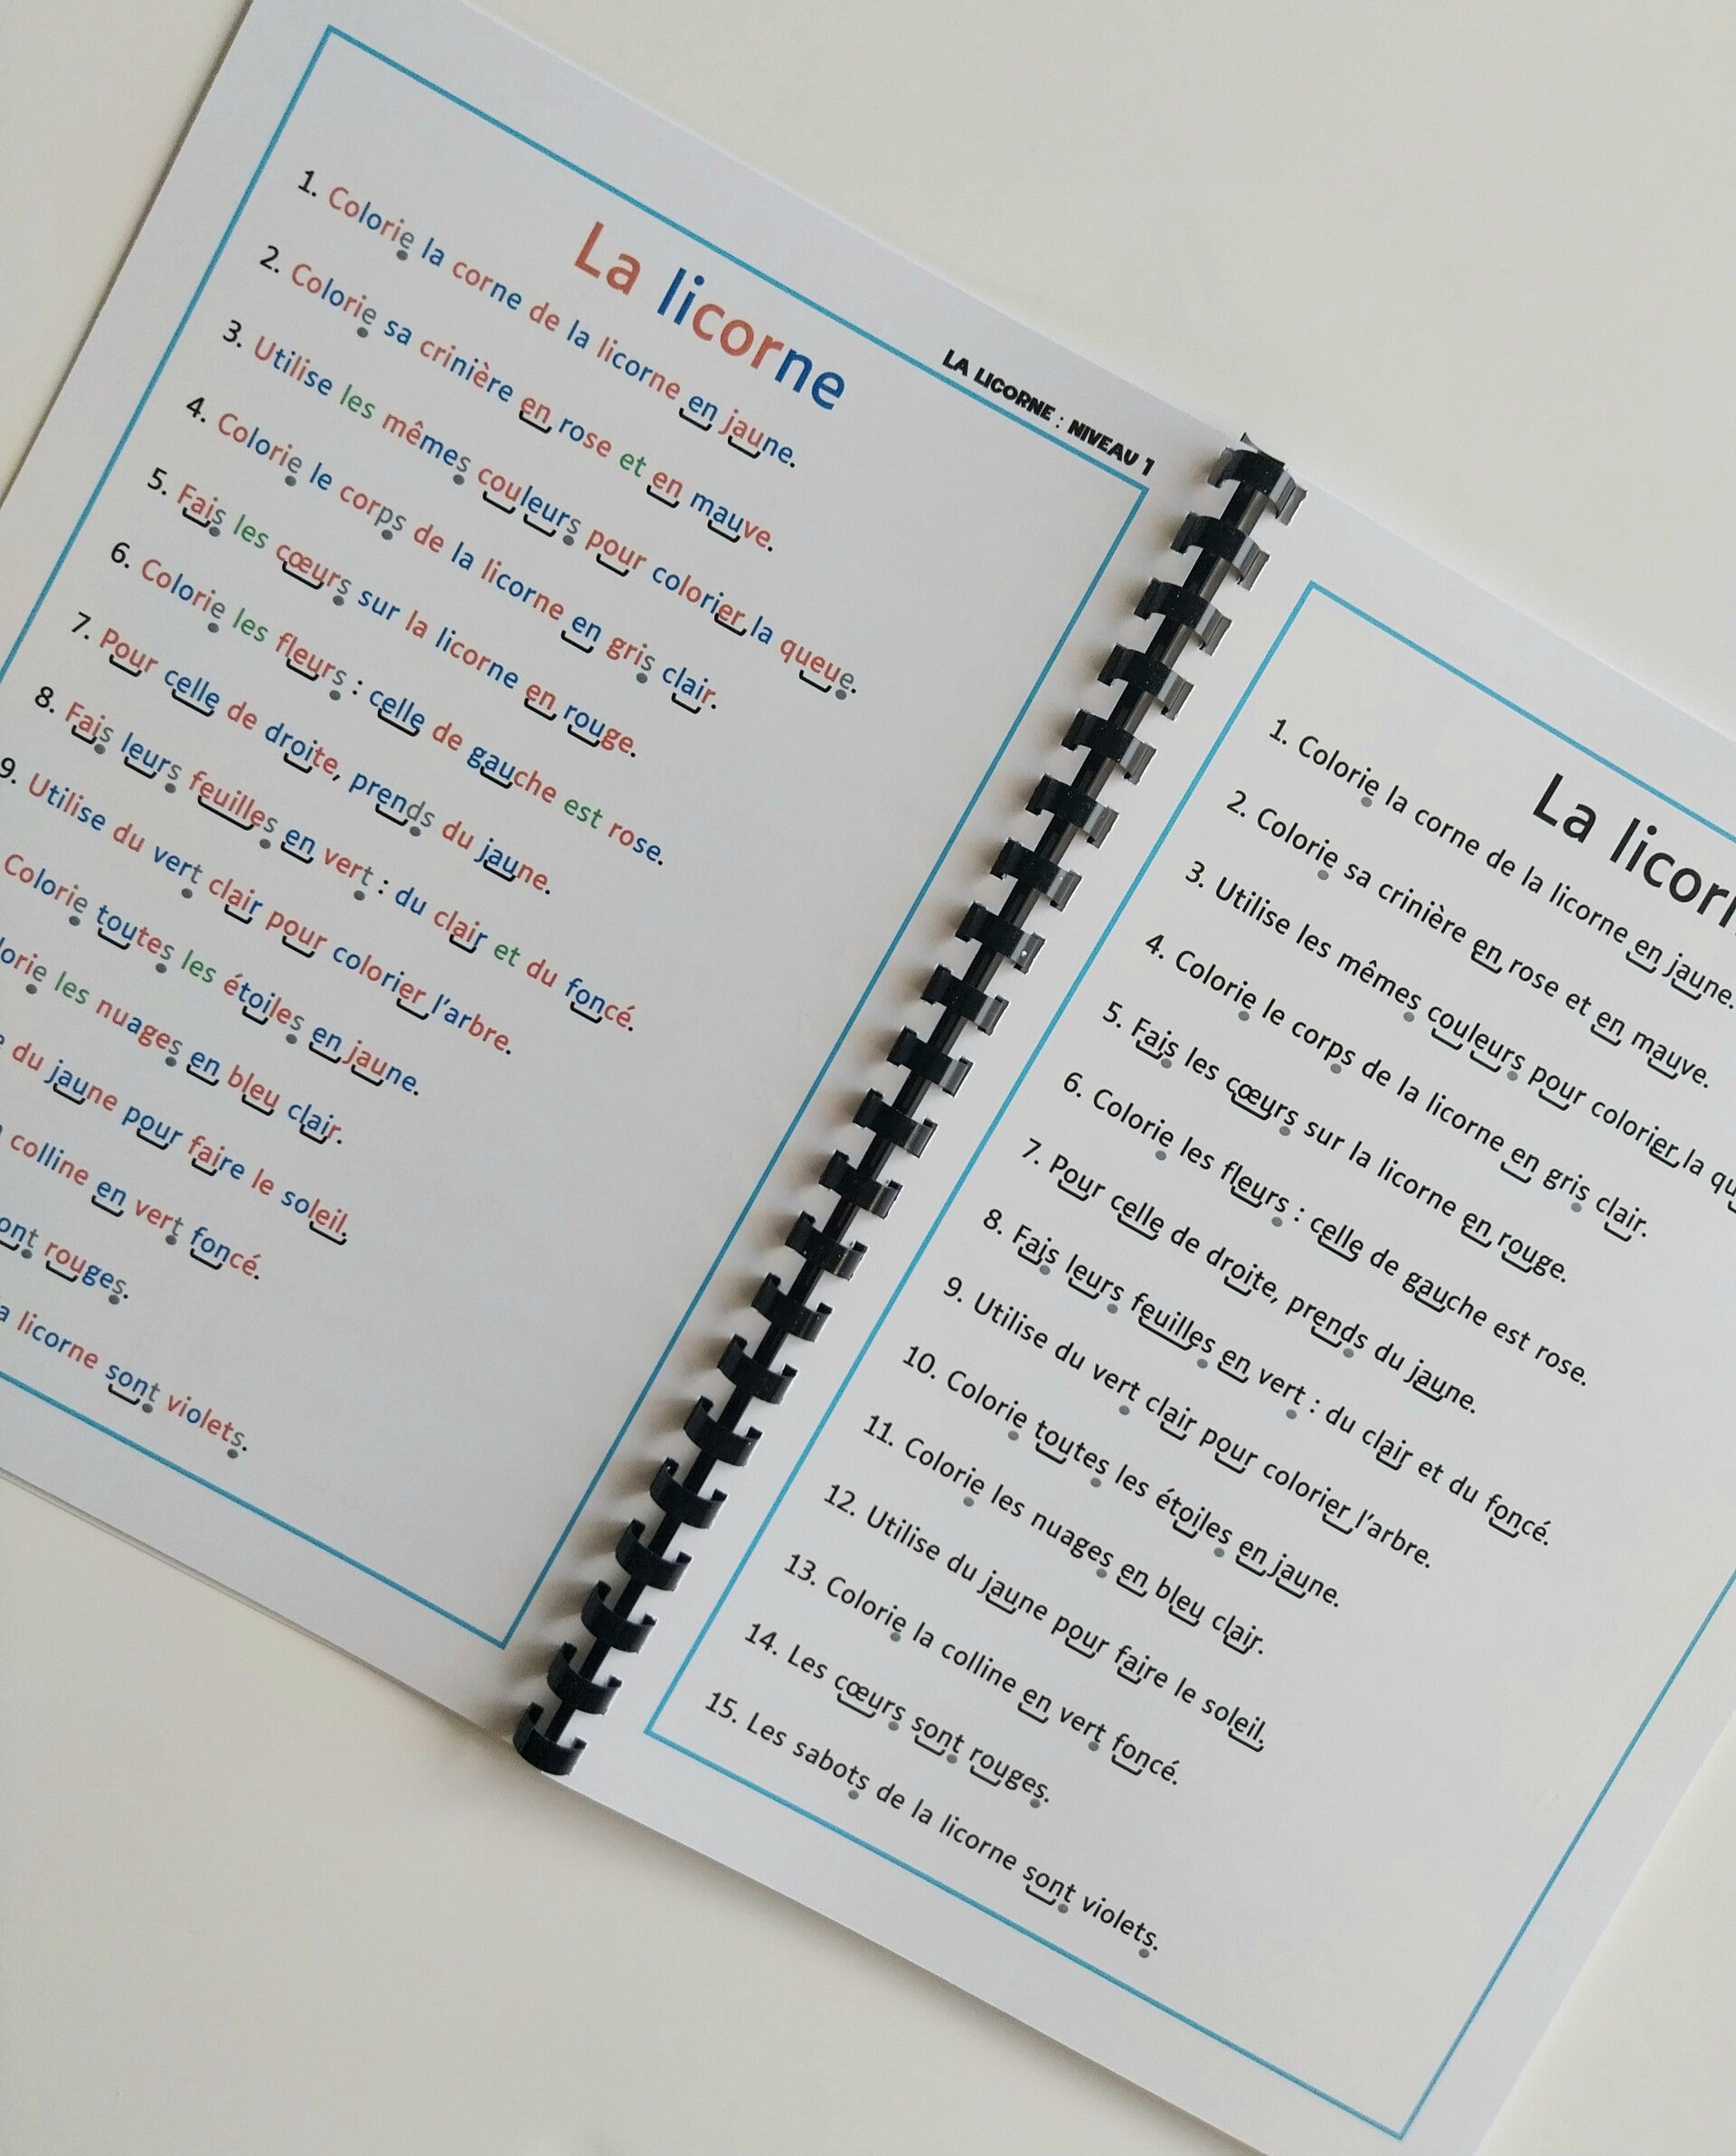 LA LICORNE : NIVEAU 1
La licorne
1. Colorie la corne de la licorne en jaune.
2. Colorie sa crinière en rose et en mauve.
3. Utilise les mêmes couleurs pour colorier la queue.
4. Colorie le corps de la licorne en gris clair.
5. Fais les cœurs sur la licorne en rouge.
6. Colorie les fleurs : celle de gauche est rose.
7. Pour celle de droite, prends du jaune.
8. Fais leurs feuilles en vert : du clair et du foncé.
9. Utilise du vert clair pour colorier l'arbre.
Colorie toutes les étoiles en jaune.
lorie les nuages en bleu clair.
e du jaune pour faire le soleil.
colline en vert foncé.
ont rouges.
a licorne sont violets.
La licor
1. Colorie la corne de la licorne en jaune.
2. Colorie sa crinière en rose et en mauve.
3. Utilise les mêmes couleurs pour colorier la qu
4. Colorie le corps de la licorne en gris clair.
5. Fais les cœurs sur la licorne en rouge.
6. Colorie les fleurs : celle de gauche est rose.
7. Pour celle de droite, prends du jaune.
8. Fais leurs feuilles en vert : du clair et du foncé.
9. Utilise du vert clair pour colorier l'arbre.
10. Colorie toutes les étoiles en jaune.
11. Colorie les nuages en bleu clair.
12. Utilise du jaune pour faire le soleil.
13. Colorie la colline en vert foncé.
14. Les cœurs sont rouges.
15. Les sabots de la licorne sont violets.